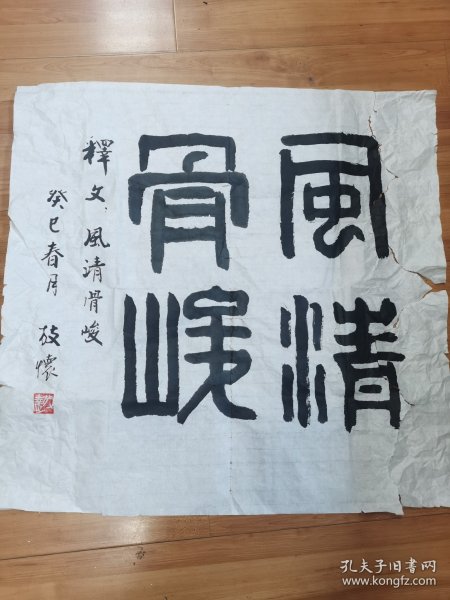 風清
骨峻
釋文 風清骨峻
癸巳春月 放懷
孔夫子旧书网
www.kongfz.com